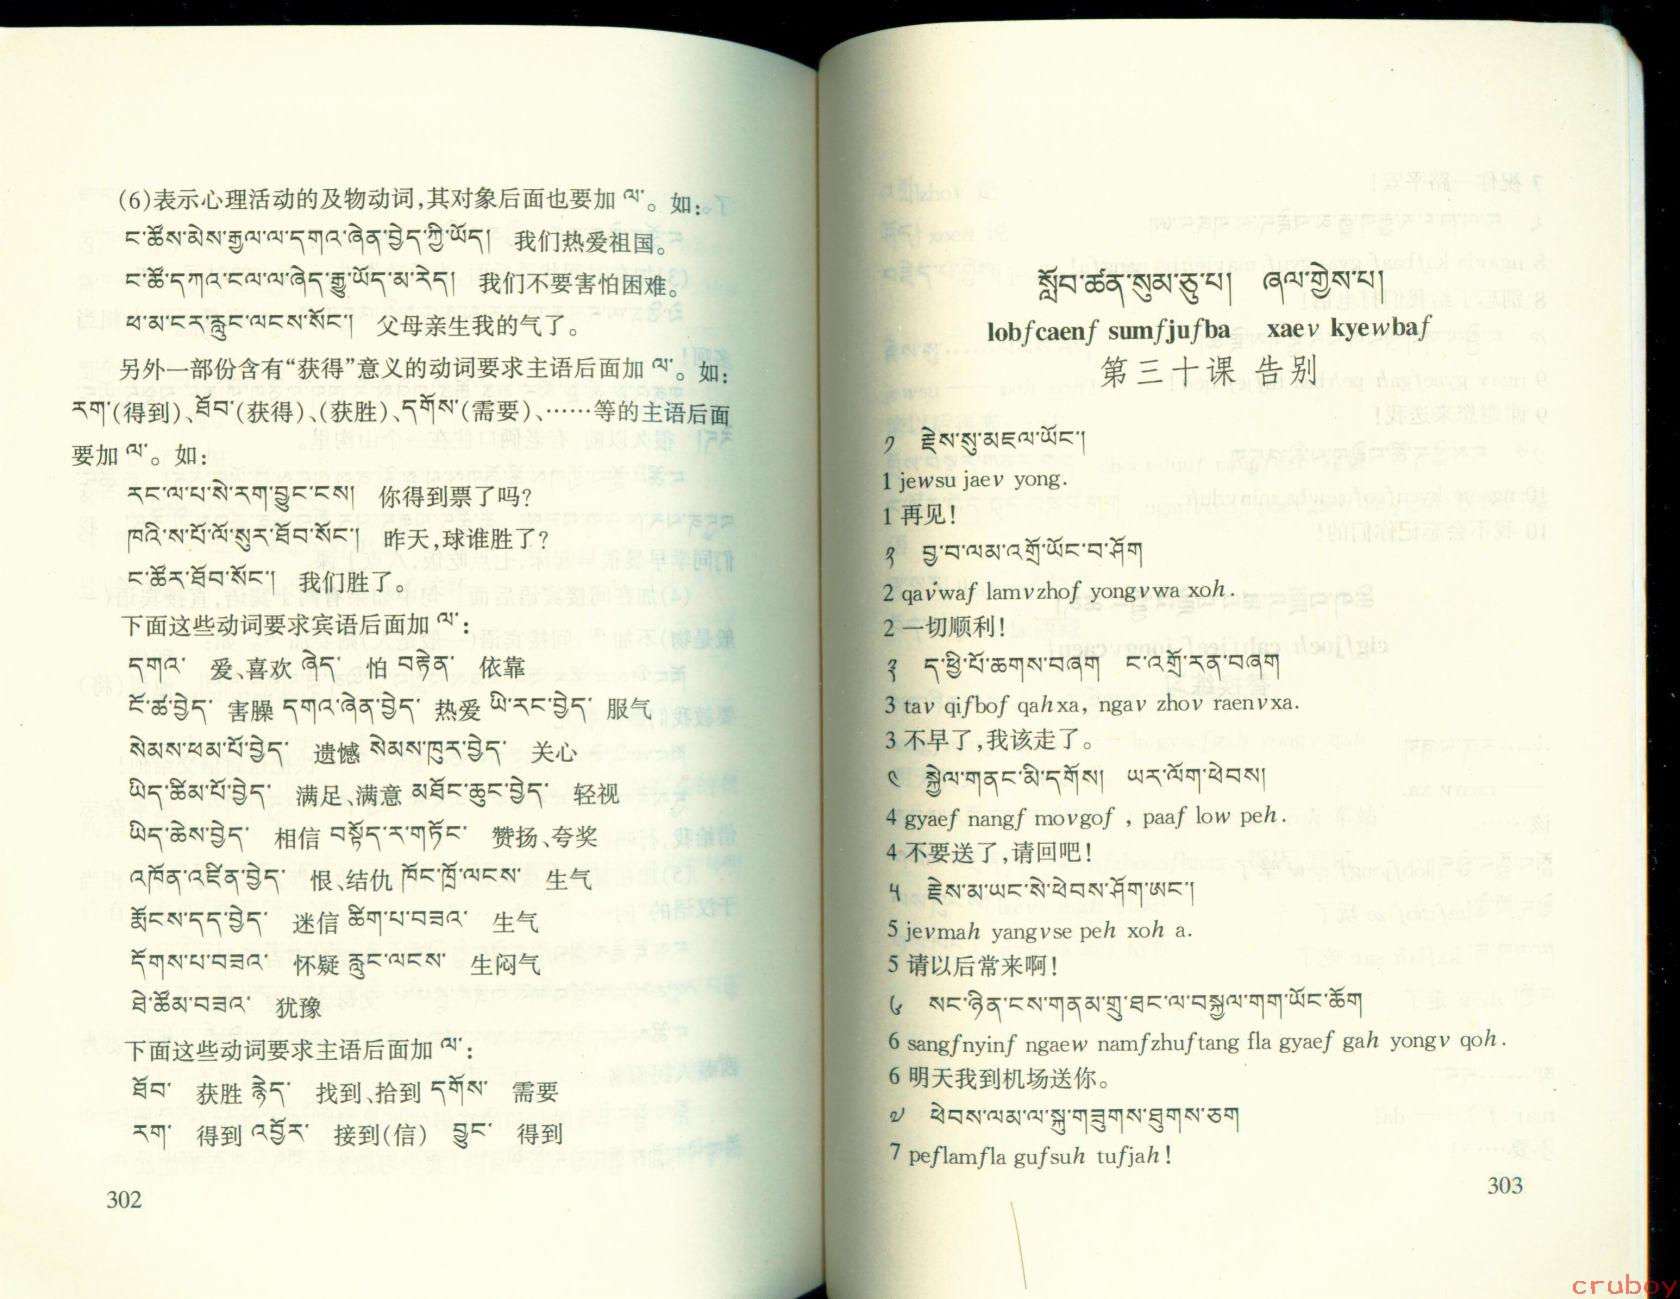 (6)表示心理活动的及物动词,其对象后面也要加 ལ་。如:
ང་ཚོས་མེས་རྒྱལ་ལ་དགའ་ཞེན་བྱེད་ཀྱི་ཡོད། 我们热爱祖国。
ང་ཚོ་དཀའ་ངལ་ལ་ཞེད་རྒྱུ་ཡོད་མ་རེད། 我们不要害怕困难。
ཕ་མ་ངར་རླུང་ལངས་སོང་། 父母亲生我的气了。
另外一部份含有“获得”意义的动词要求主语后面加 ལ་。如:
རག་(得到)、ཐོབ་(获得)、(获胜)、དགོས་(需要)、……等的主语后面
要加 ལ་。如:
རང་ལ་པ་སེ་རག་བྱུང་ངས། 你得到票了吗?
ཁའི་ས་པོ་ལོ་སུར་ཐོབ་སོང་། 昨天,球谁胜了?
ང་ཚོར་ཐོབ་སོང་། 我们胜了。
下面这些动词要求宾语后面加 ལ་:
དགའ་ 爱、喜欢 ཞེད་ 怕 བརྟེན་ 依靠
ངོ་ཚ་བྱེད་ 害臊 དགའ་ཞེན་བྱེད་ 热爱 ཡི་རང་བྱེད་ 服气
སེམས་ཕམ་པོ་བྱེད་ 遗憾 སེམས་ཁུར་བྱེད་ 关心
ཡིད་ཚིམ་པོ་བྱེད་ 满足、满意 མཐོང་ཆུང་བྱེད་ 轻视
ཡིད་ཆེས་བྱེད་ 相信 བསྟོད་ར་གཏོང་ 赞扬、夸奖
འཁོན་འཛིན་བྱེད་ 恨、结仇 ཁོང་ཁྲོ་ལངས་ 生气
རྨོངས་དད་བྱེད་ 迷信 ཚིག་པ་བཟའ་ 生气
དོགས་པ་བཟའ་ 怀疑 རླུང་ལངས་ 生闷气
ཐེ་ཚོམ་བཟའ་ 犹豫
下面这些动词要求主语后面加 ལ་:
ཐོབ་ 获胜 རྙེད་ 找到、拾到 དགོས་ 需要
རག་ 得到 འབྱོར་ 接到(信) བྱུང་ 得到
302
སློབ་ཚན་སུམ་ཅུ་པ། ཞལ་གྱེས་པ།
lobfcaenf sumfjufba xaev kyewbaf
第三十课 告别
༡ རྗེས་སུ་མཇལ་ཡོང་།
1 jewsu jaev yong.
1 再见!
༢ བྱ་བ་ལམ་འགྲོ་ཡོང་བ་ཤོག
2 qavwaf lamvzhof yongvwa xoh.
2 一切顺利!
༣ ད་ཕྱི་པོ་ཆགས་བཞག ང་འགྲོ་རན་བཞག
3 tav qifbof qahxa, ngav zhov raenvxa.
3 不早了,我该走了。
༤ སྐྱེལ་གནང་མི་དགོས། ཡར་ལོག་ཕེབས།
4 gyaef nangf movgof , paaf low peh.
4 不要送了,请回吧!
༥ རྗེས་མ་ཡང་སེ་ཕེབས་ཤོག་ཨང་།
5 jevmah yangvse peh xoh a.
5 请以后常来啊!
༦ སང་ཉིན་ངས་གནམ་གྲུ་ཐང་ལ་བསྐྱལ་གག་ཡོང་ཆོག
6 sangfnyinf ngaew namfzhuftang fla gyaef gah yongv qoh.
6 明天我到机场送你。
༧ ཕེབས་ལམ་ལ་སྐུ་གཟུགས་ཐུགས་ཅག
7 peflamfla gufsuh tufjah!
303
cruboy